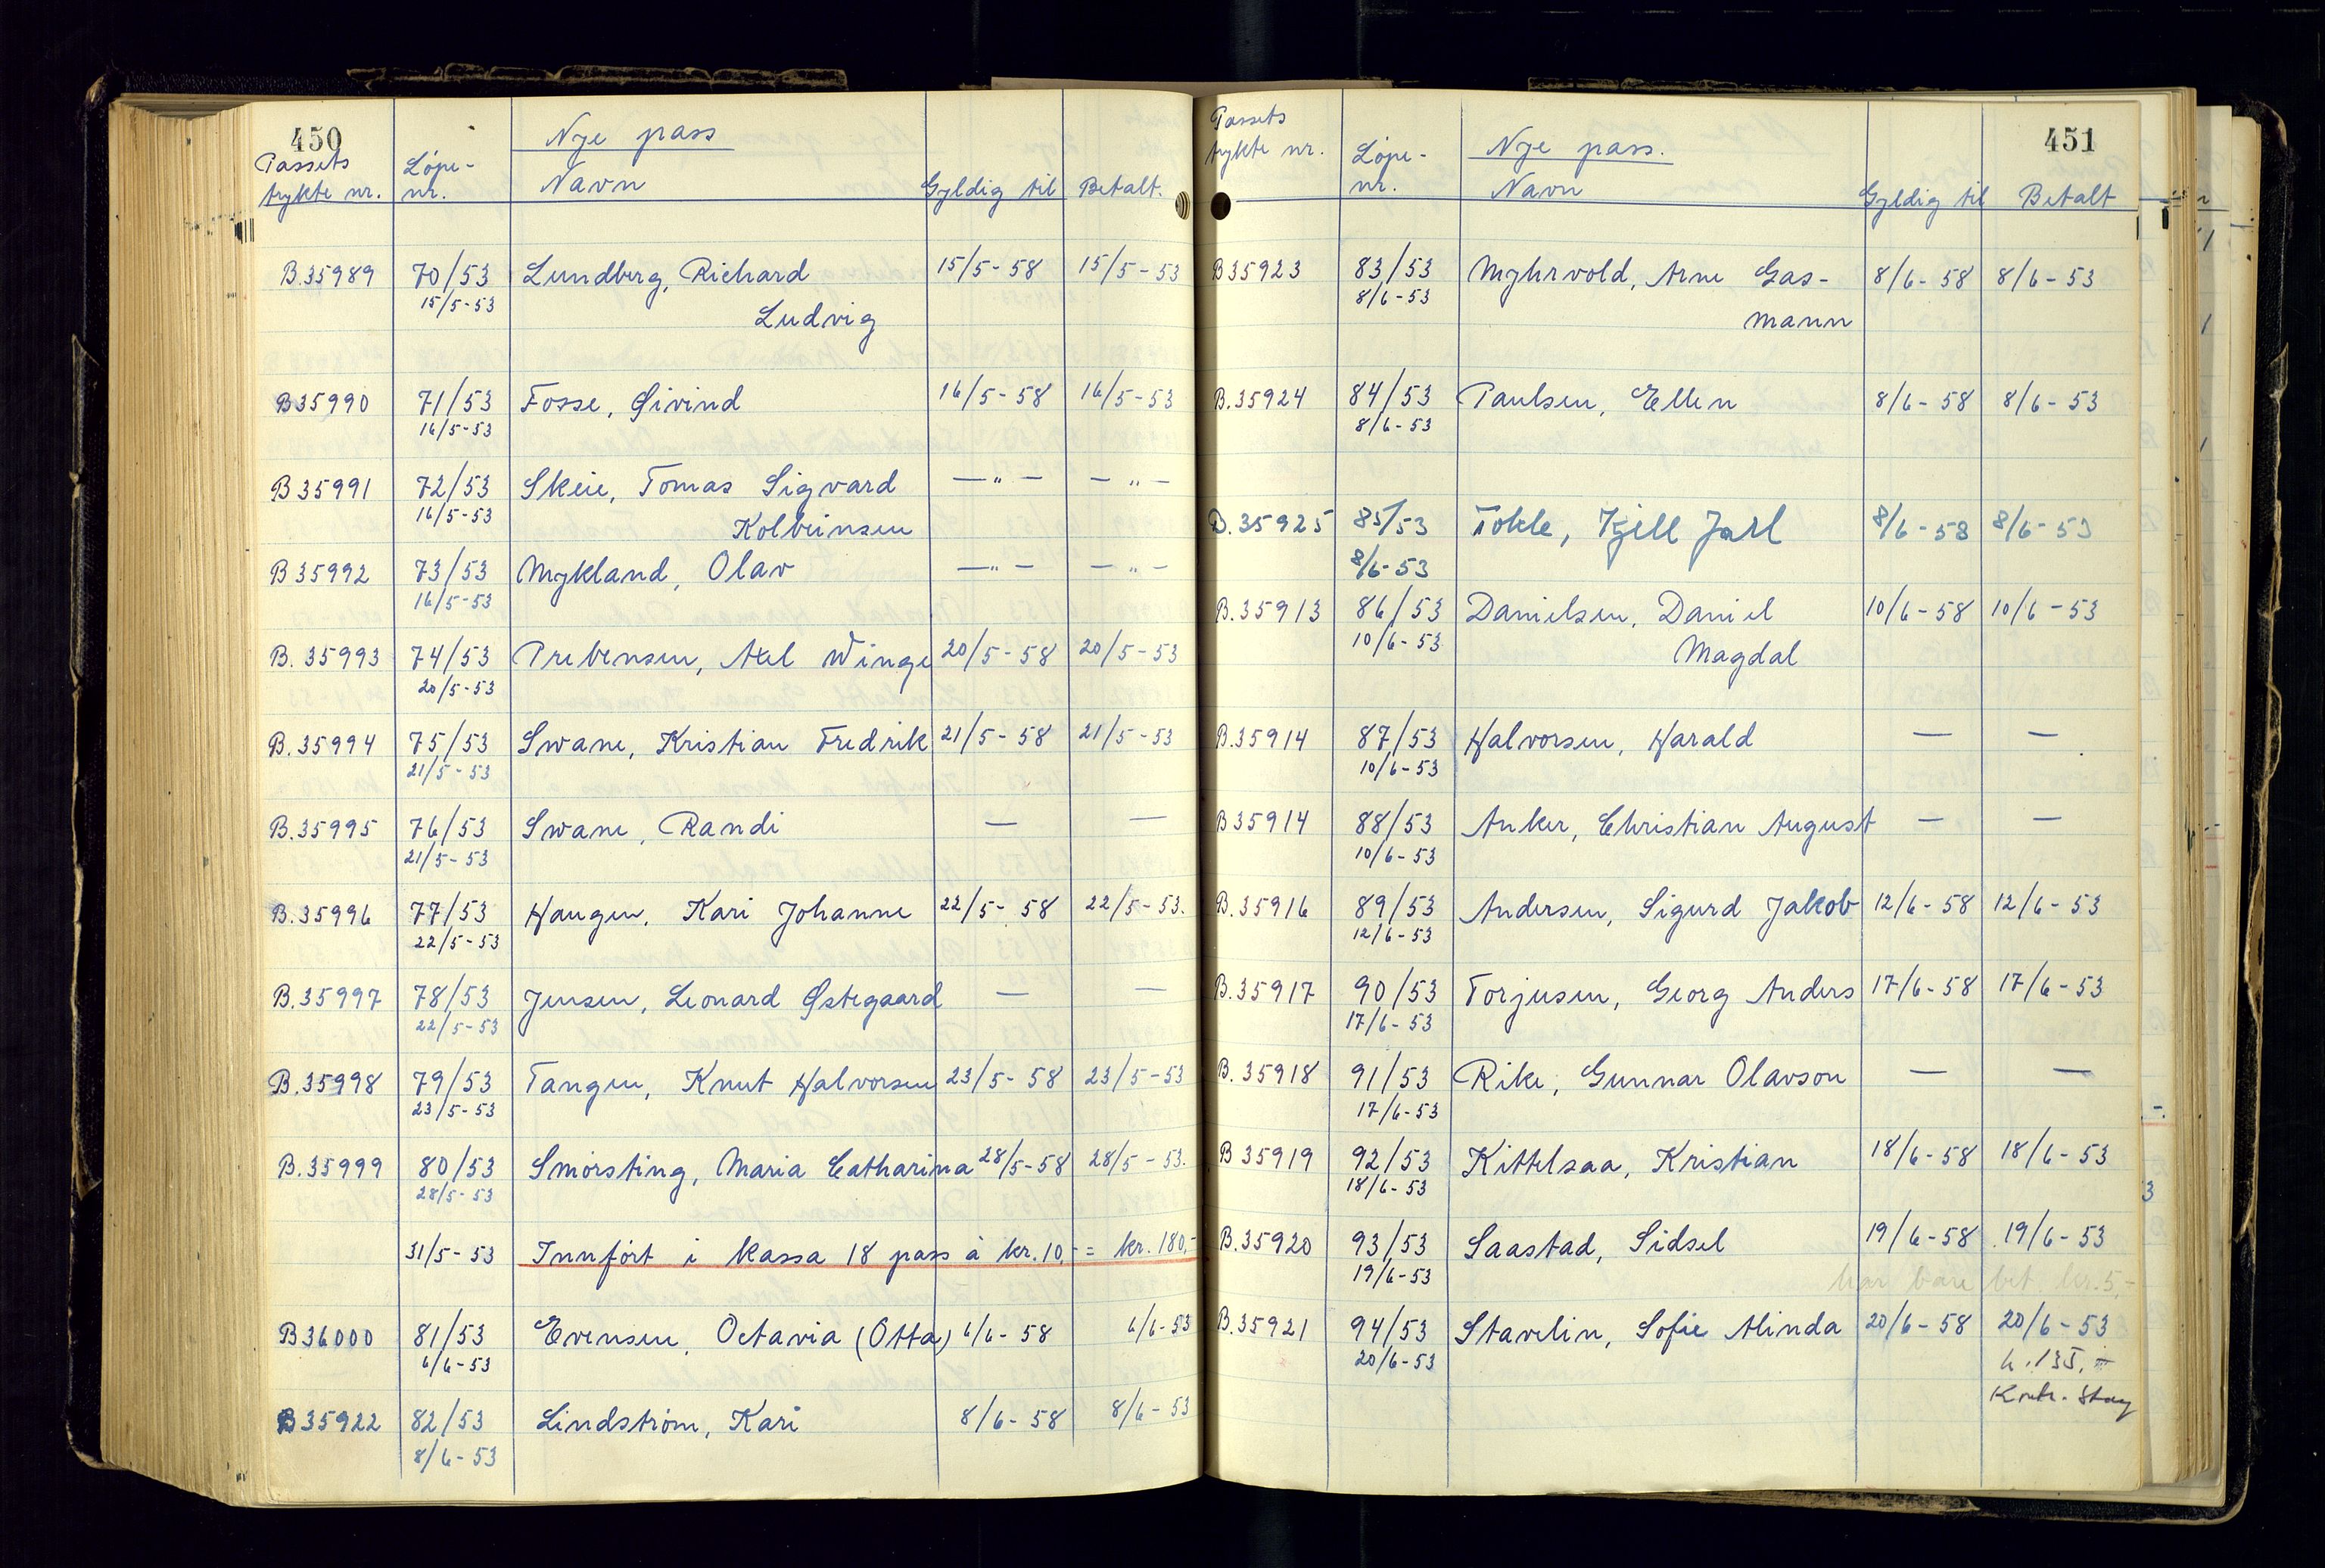 450
Nye pass
Passets Løpe-
trykte nr. nr. Navn Gyldig til Betalt.
B.35989 70/53 Lundberg, Richard 15/5-58 15/5-53
15/5-53 Ludvig
B35990 71/53 Fosse, Øivind 16/5-58 16/5-53
16/5-53
B35991 72/53 Skeie, Tomas Sigvard —„— —„—
16/5-53 Kolbeinsen
B35992 73/53 Mykland, Olav —„— —„—
16/5-53
B.35993 74/53 Prebensen, Axel Winge 20/5-58 20/5-53
20/5-53
B.35994 75/53 Swane, Kristian Fredrik 21/5-58 21/5-53
21/5-53
B.35995 76/53 Swane, Randi — —
21/5-53
B.35996 77/53 Haugen, Kari Johanne 22/5-58 22/5-53.
22/5-53
B.35997 78/53 Jensen, Leonard Østegaard — —
22/5-53
B.35998 79/53 Tangen, Knut Halvorsen 23/5-58 23/5-53
23/5-53
B.35999 80/53 Smørsting, Maria Catharina 28/5-58 28/5-53.
28/5-53
31/5-53 Innført i kassa 18 pass à kr. 10,- = kr. 180,-
B36000 81/53 Evensen, Octavia (Otta) 6/6-58 6/6-53
6/6-53
B35922 82/53 Lindstrøm, Kari 8/6-58 8/6-53
8/6-53
451
Passets
trykte nr. Løpe- Nye pass.
nr. Navn Gyldig til Betalt
B35923 83/53 Myhrvold, Arne Gas- 8/6-58 8/6-53
8/6-53 mann
B.35924 84/53 Paulsen, Ellen 8/6-58 8/6-53
8/6-53
B.35925 85/53 Tokle, Kjell Jarl 8/6-58 8/6-53
8/6-53
B.35913 86/53 Danielsen, Daniel 10/6-58 10/6-53
10/6-53 Magdal
B.35914 87/53 Halvorsen, Harald — —
10/6-53
B35914 88/53 Anker, Christian August — —
10/6-53
B.35916 89/53 Andersen, Sigurd Jakob 12/6-58 12/6-53
12/6-53
B.35917 90/53 Torjusen, Georg Anders 17/6-58 17/6-53
17/6-53
B.35918 91/53 Rike, Gunnar Olavson — —
17/6-53
B35919 92/53 Kittelsaa, Kristian 18/6-58 18/6-53
18/6-53
B.35920 93/53 Saastad, Sidsel 19/6-58 19/6-53
19/6-53 har bare bet. kr. 5,-
B.35921 94/53 Stavelin, Sofie Alinda 20/6-58 20/6-53
20/6-53 135,-